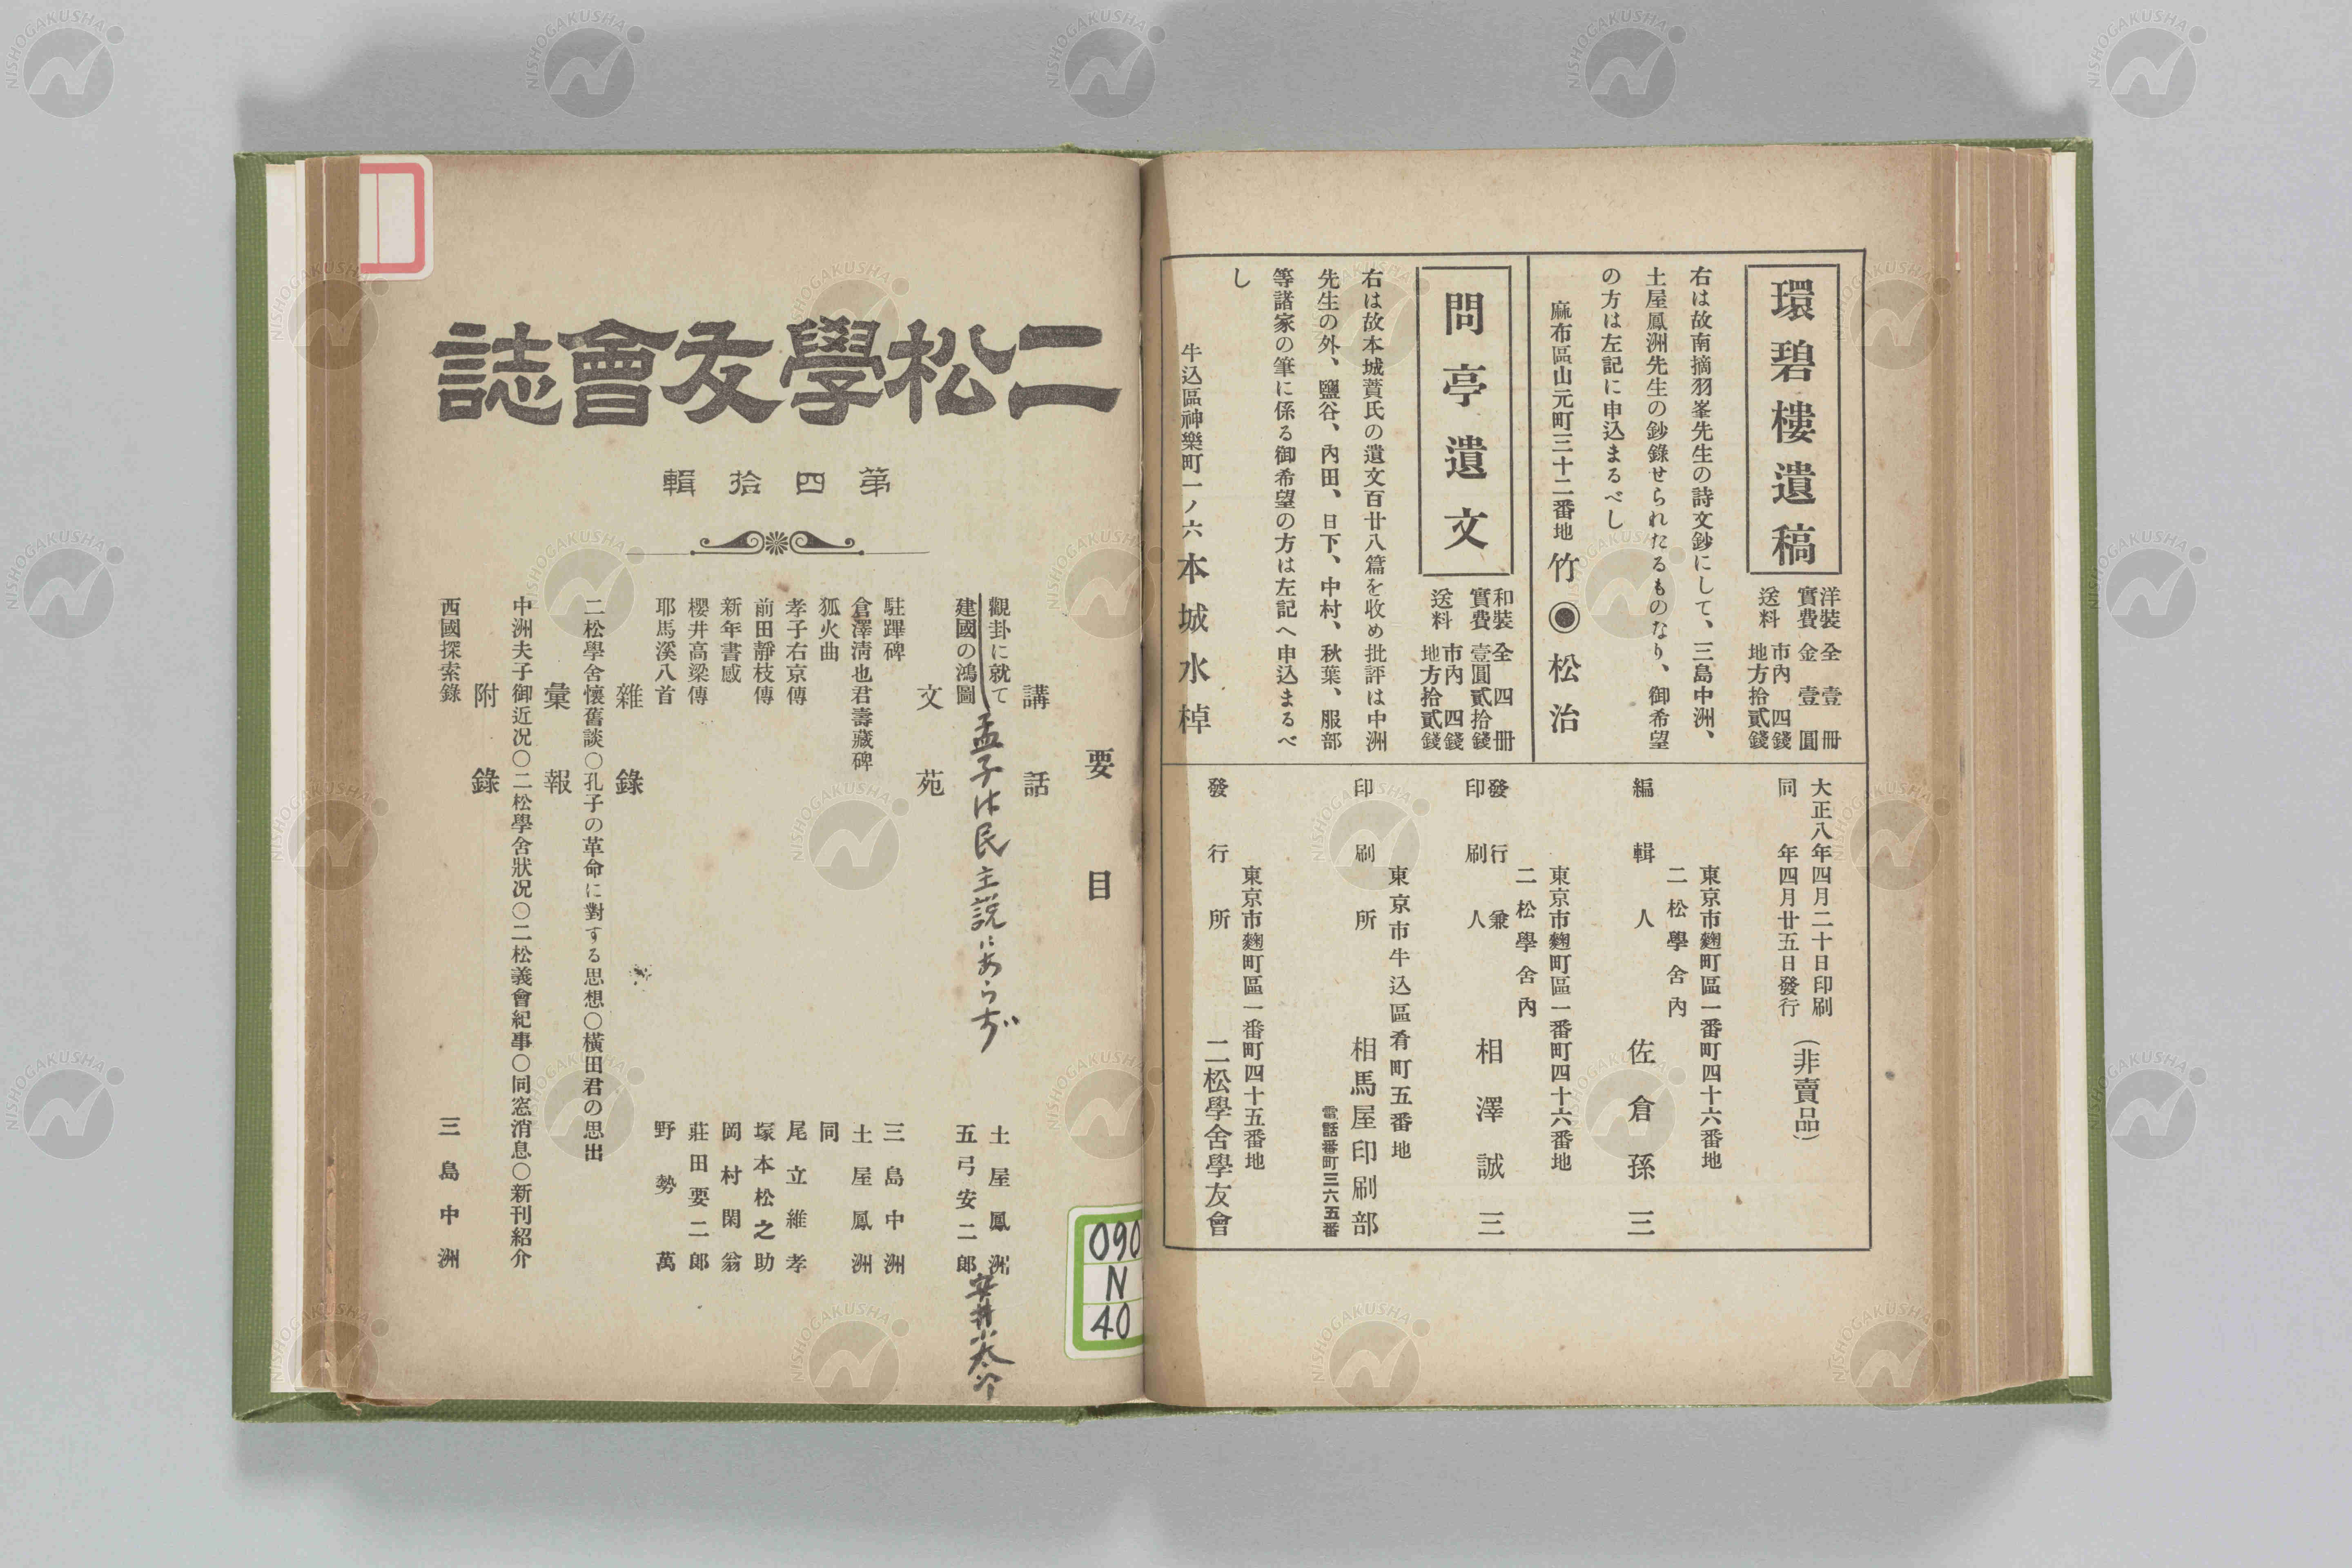 環碧樓遺稿
洋裝 全壹冊
實費 金壹圓
送料 市內四錢
地方拾貳錢
右は故南摘羽峯先生の詩文鈔にして、三島中洲、
土屋鳳洲先生の鈔錄せられたるものなり、御希望
の方は左記に申込まるべし
麻布區山元町三十二番地 竹◉松治
問亭遺文
和裝 全四冊
實費 壹圓貳拾錢
送料 市內四錢
地方拾貳錢
右は故本城蕡氏の遺文百廿八篇を收め批評は中洲
先生の外、鹽谷、內田、日下、中村、秋葉、服部
等諸家の筆に係る御希望の方は左記へ申込まるべ
し
牛込區神樂町一ノ六 本城水棹
大正八年四月二十日印刷
同年四月廿五日發行
(非賣品)
東京市麴町區一番町四十六番地
二松學舍內
編輯人 佐倉孫三
東京市麴町區一番町四十六番地
二松學舍內
發行兼
印刷人 相澤誠三
東京市牛込區肴町五番地
印刷所 相馬屋印刷部
電話番町三六五番
東京市麴町區一番町四十五番地
發行所 二松學舍學友會
二松學友會誌
第四拾輯
要目
講話
觀卦に就て 土屋鳳洲
孟子は民主説にあらず 安井小太郎
建國の鴻圖 五弓安二郎
文苑
駐蹕碑 三島中洲
倉澤淸也君壽藏碑 土屋鳳洲
狐火曲 同
孝子右京傳 尾立維孝
前田靜枝傳 塚本松之助
新年書感 岡村閑翁
櫻井高梁傳 莊田要二郎
耶馬溪八首 野勢萬
雜錄
二松學舍懷舊談○孔子の革命に對する思想○橫田君の思出
彙報
中洲夫子御近況○二松學舍狀況○二松義會紀事○同窓消息○新刊紹介
附錄
西國探索錄 三島中洲
090
N
40
NISHOGAKUSHA